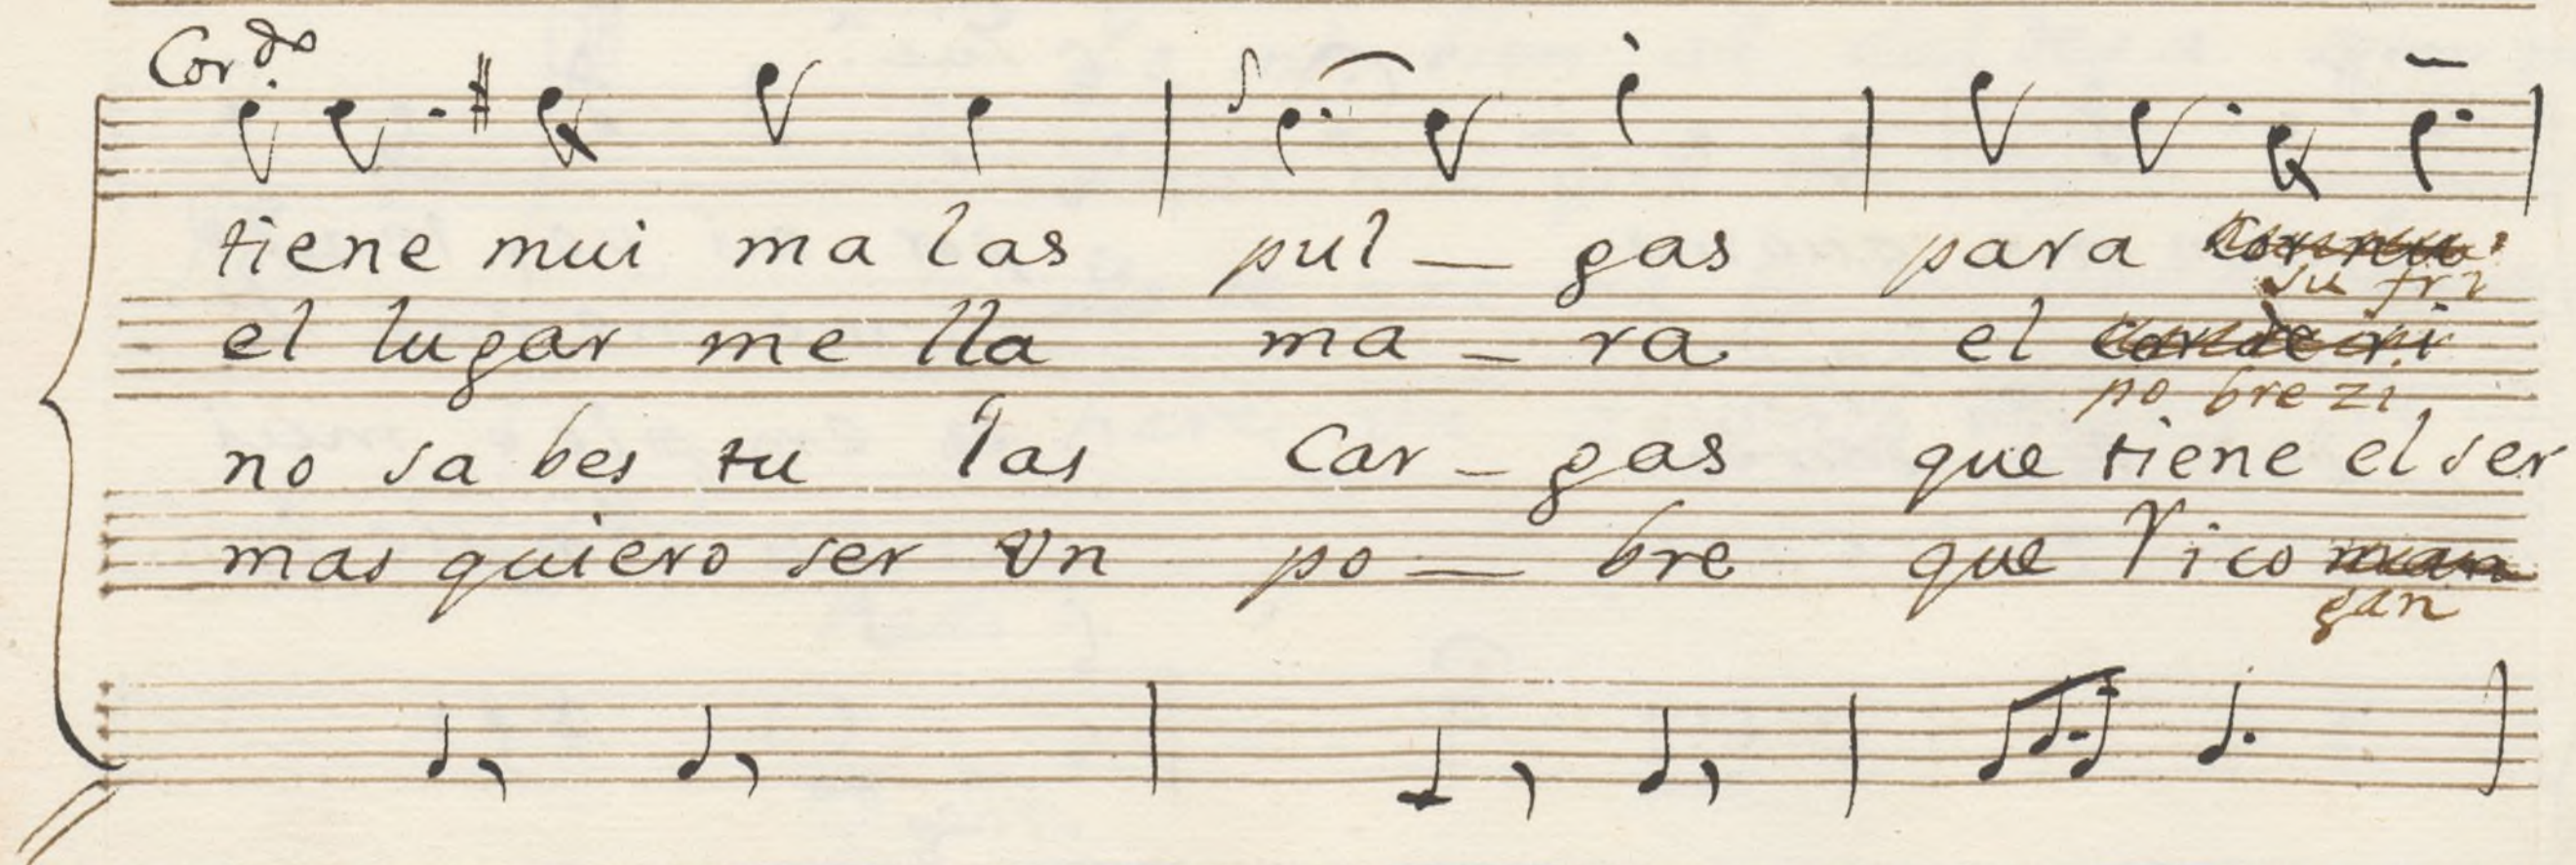 Cor.do
tiene mui ma las pul _ gas para cornu
su fri
el lugar me lla ma _ ra el corderi
po bre zi
no sa bes tu las Car _ gas que tiene el ser
mas quiero ser Vn po _ bre que Rico man
gan